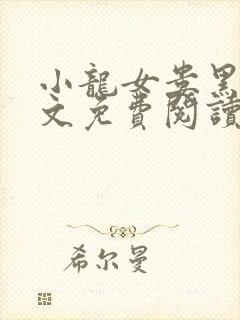 小龍女婁黑
文免費閱讀
希尔曼